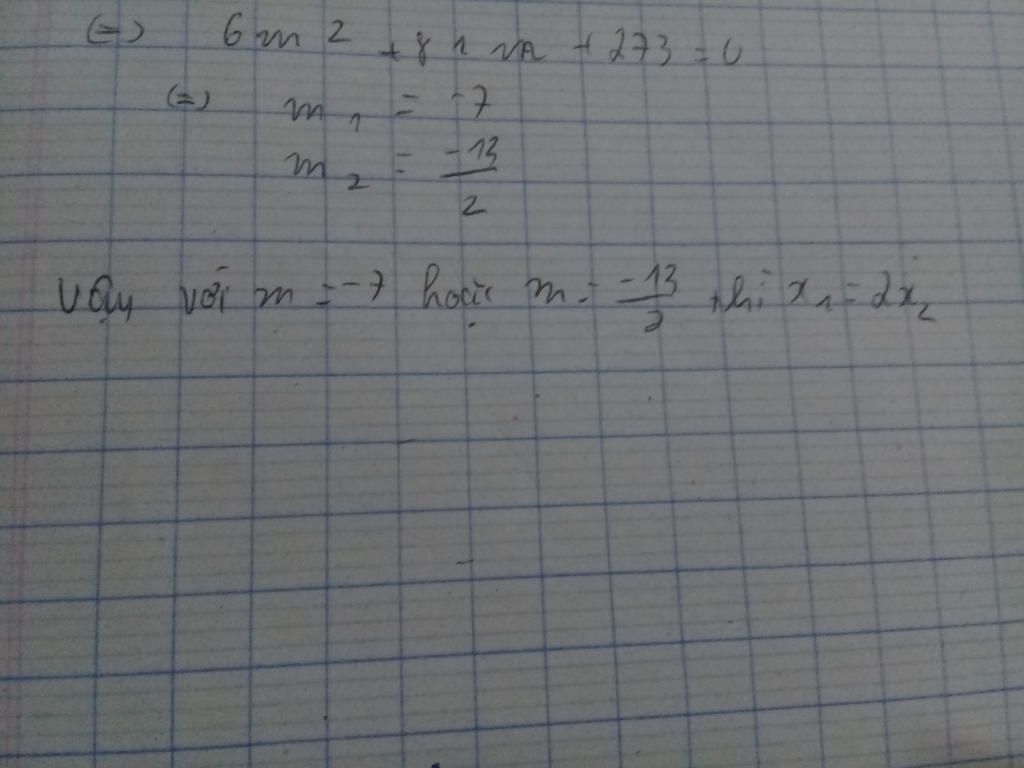 (=) 6m² + 81m + 273 = 0
(=) m₁ = -7
m₂ = -13/2
Vậy với m = -7 hoặc m = -13/2 thì x₁ = 2x₂